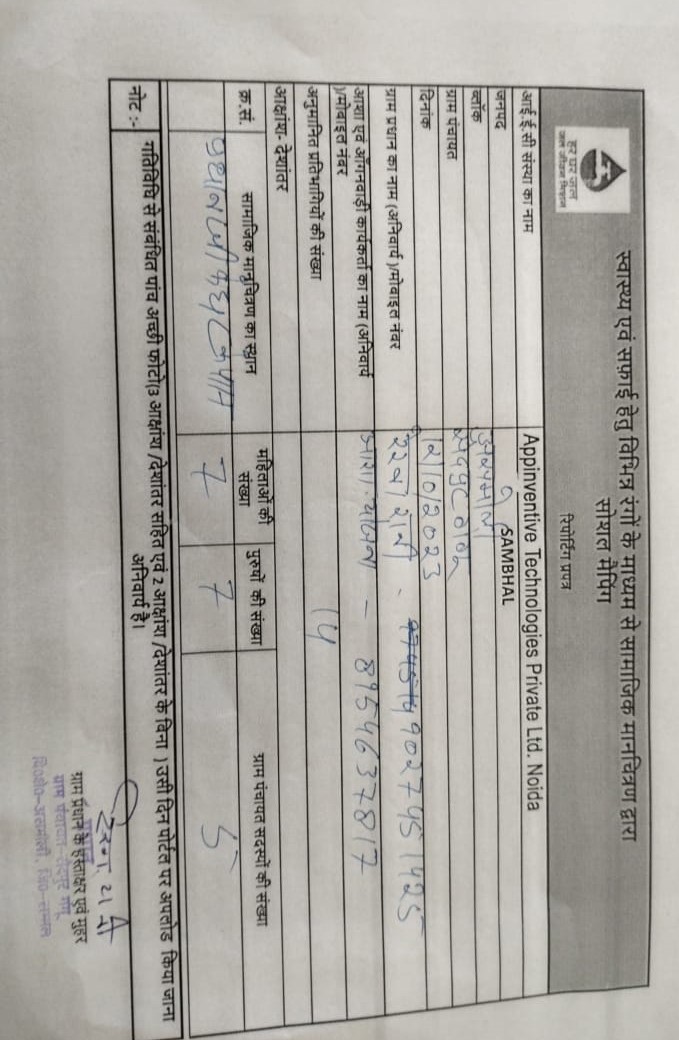 हर घर जल
जल जीवन मिशन
स्वास्थ्य एवं सफ़ाई हेतु विभिन्न रंगों के माध्यम से सामाजिक मानचित्रण द्वारा
सोशल मैपिंग
रिपोर्टिंग प्रपत्र
आई.ई.सी संस्था का नाम Appinventive Technologies Private Ltd. Noida
जनपद SAMBHAL
ब्लॉक
ग्राम पंचायत
दिनांक 12/10/2023
ग्राम प्रधान का नाम (अनिवार्य )/मोबाइल नंबर 9027451425
आशा एवं आँगनवाड़ी कार्यकर्ता का नाम (अनिवार्य - 8954637817
)/मोबाइल नंबर
अनुमानित प्रतिभागियों की संख्या 14
आक्षांश- देशांतर
क्र.सं. सामाजिक मानुचित्रण का स्थान महिलाओं की संख्या पुरुषों की संख्या ग्राम पंचायत सदस्यों की संख्या
7 7 5
नोट :- गतिविधि से संबंधित पांच अच्छी फोटो(3 आक्षांश /देशांतर सहित एवं 2 आक्षांश /देशांतर के बिना ) उसी दिन पोर्टल पर अपलोड किया जाना
अनिवार्य है।
ग्राम प्रधान के हस्ताक्षर एवं मुहर